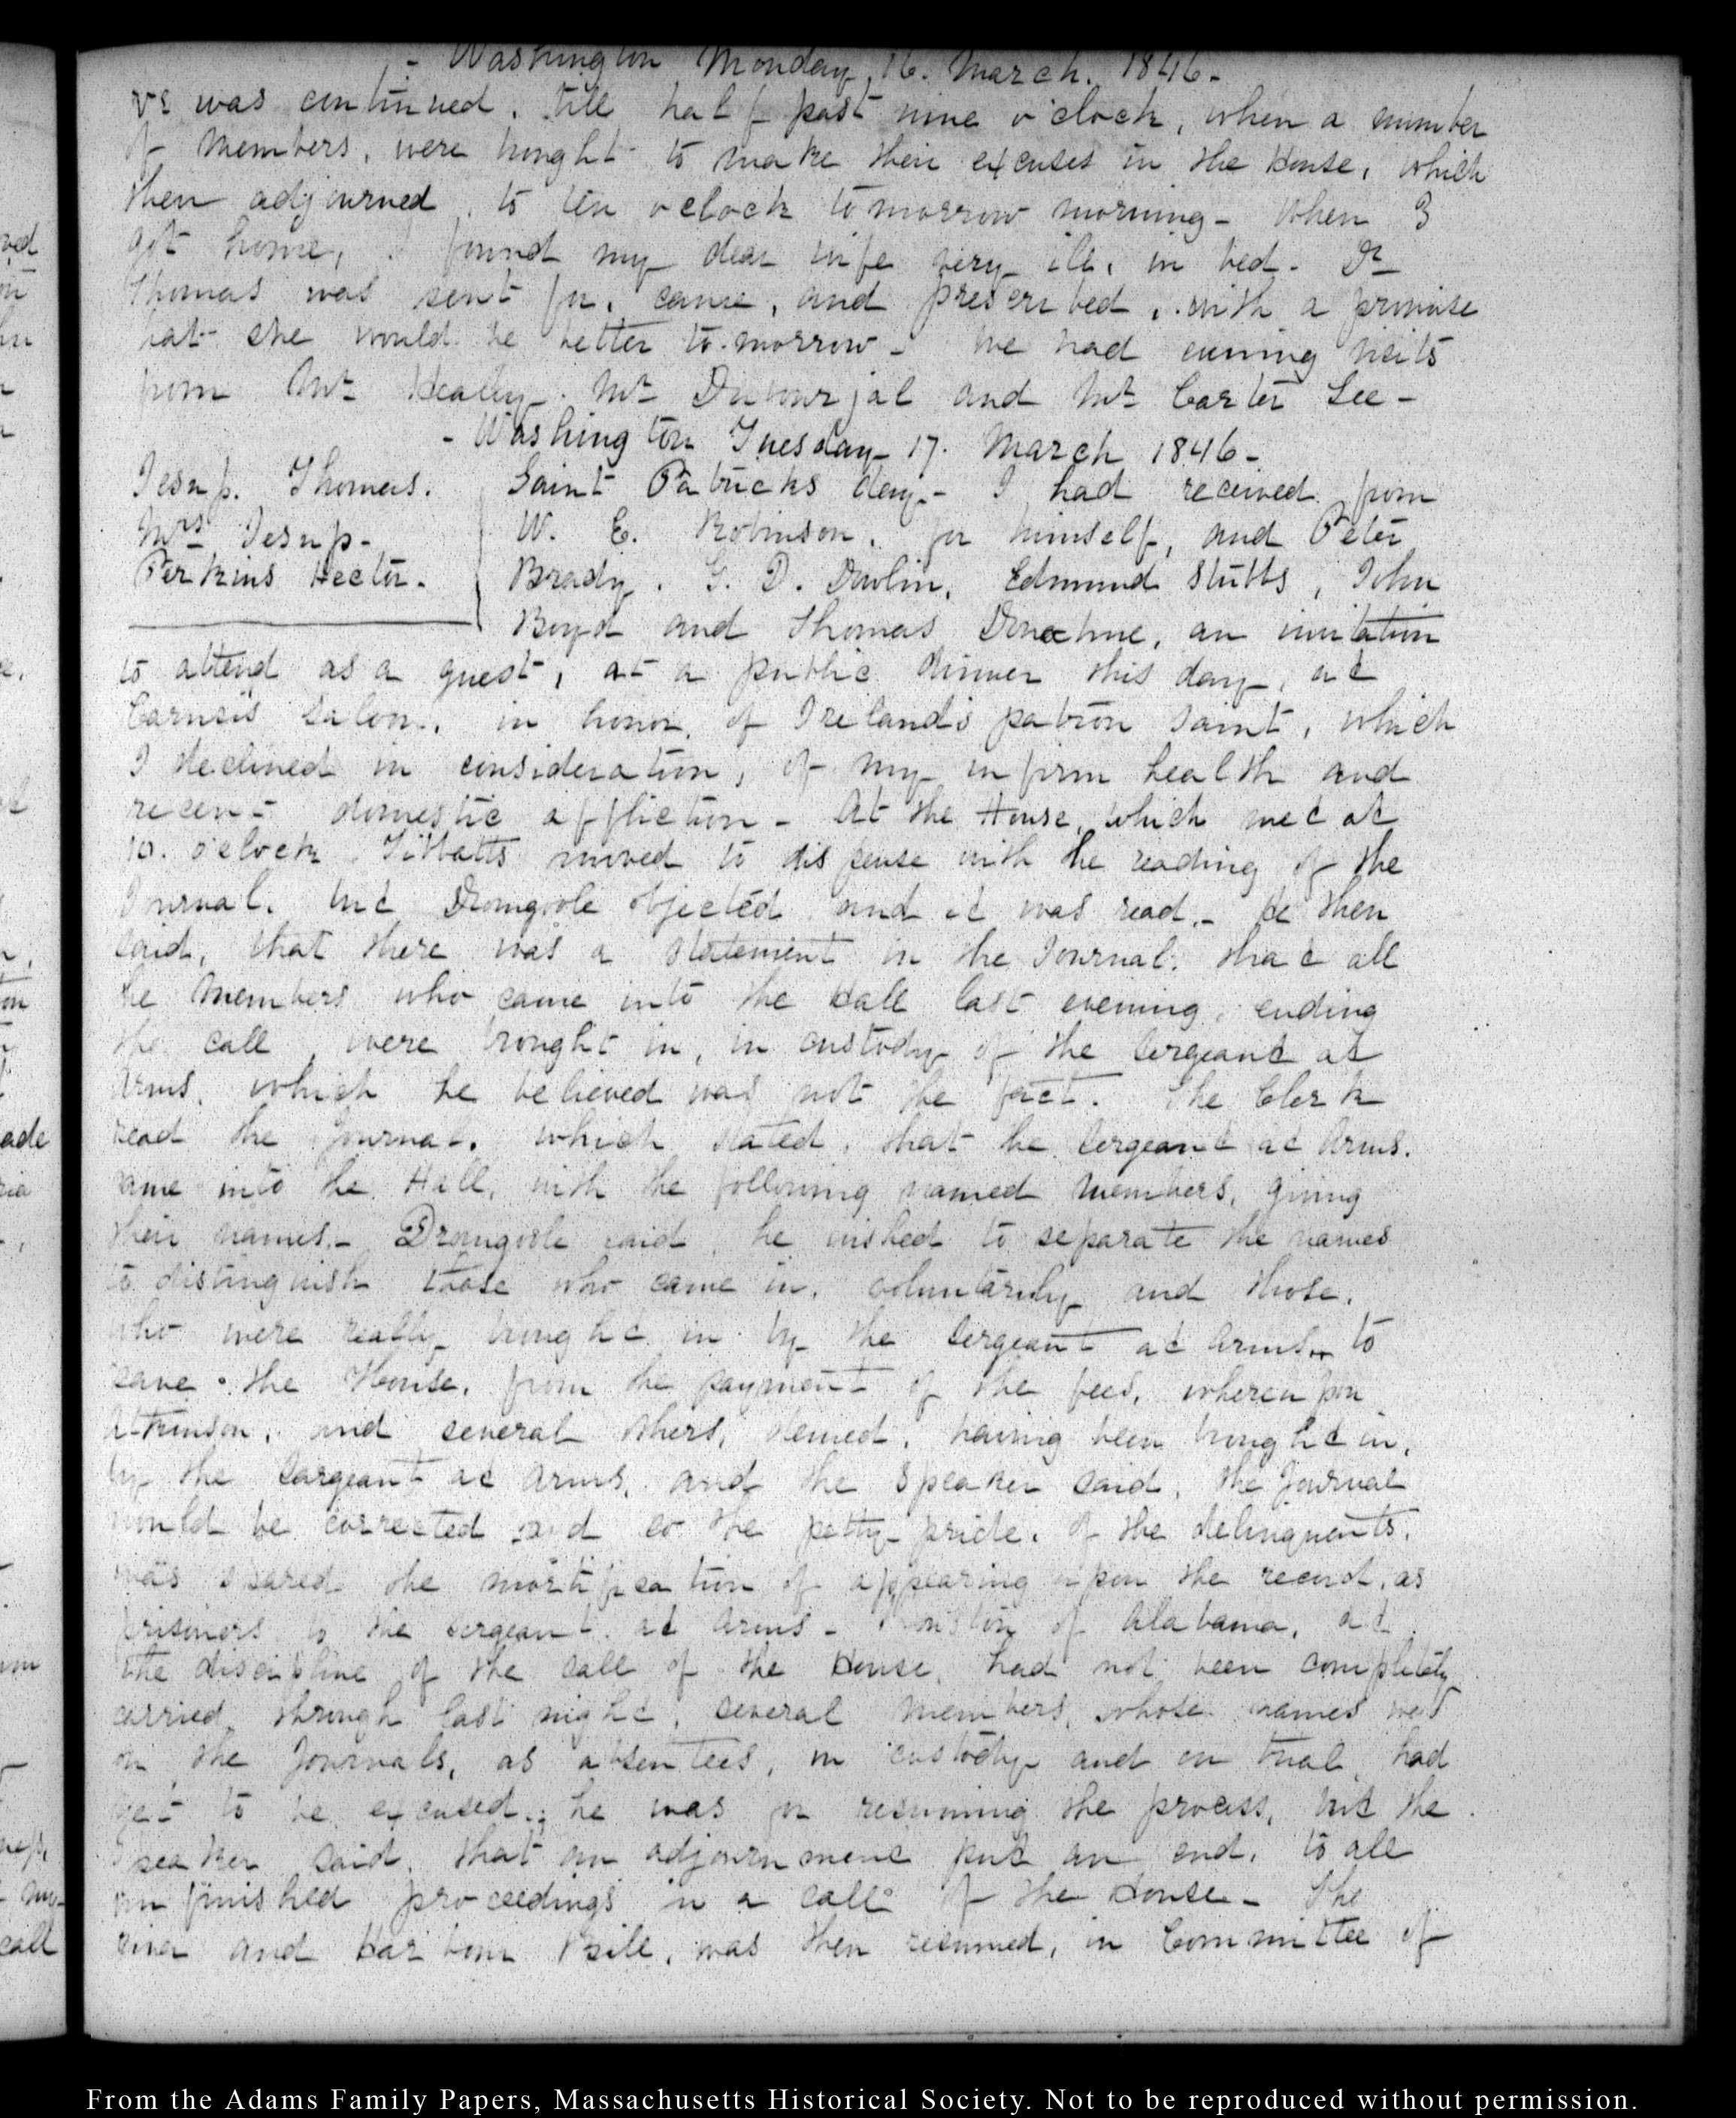 - Washington Monday, 16. March. 1846-
was continued, till half past nine o'clock, when a number
of Members, were brought to make their excuses in the House, which
then adjourned, to ten oclock tomorrow morning- When I
got home, I found my dear wife very ill, in bed- Dr
Thomas was sent for, came, and prescribed, with a promise
that she would be better to-morrow- We had evening visits
from Mr Healey. Mr Dubourjal and Mr Carter Lee-
- Washington Tuesday- 17. March 1846-
Jesup. Thomas.
Mrs Jesup-
Perkins Hector.
Saint Patricks day- I had received from
W. E. Robinson, for himself, and Peter
Brady, G. D. Dowlin, Edmund Stubbs, John
Boyd and Thomas Donoehue, an invitation
to attend as a guest, at a public dinner this day, at
Carusis Saloon, in honor, of Ireland's patron Saint, which
I declined in consideration, of my infirm health and
recent domestic affliction- At the House, which met at
10. o'clock Tibbatts moved to dispense with the reading of the
Journal, but Dromgoole objected and it was read.- He then
said, that there was a statement in the Journal, that all
the Members who came into the Hall last evening, ending
the call, were brought in, in custody of the Sergeant at
Arms, which he believed was not the fact. The Clerk
read the Journal, which stated, that the Sergeant at Arms.
came into the Hall, with the following named Members, giving
their names.- Dromgoole said, he wished to separate the names
to distinguish those who came in, voluntarily and those,
who were really brought in by the Sergeant at Arms, to
save the House, from the payment of the fees, whereupon
Atkinson, and several others, denied, having been brought in,
by the Sargeant at Arms, and the Speaker said, the Journal
would be corrected and so the petty pride, of the delinquents,
was spared the mortification of appearing upon the record, as
prisoners to the Sergeant at Arms- Houston of Alabama, at
the discipline of the call of the House, had not been completely
carried, through last night, several Members, whose names were
on the Journals, as absentees, in custody and on trial, had
yet to be excused.; he was for resuming the process, but the
Speaker said, that an adjournment put an end, to all
unfinished proceedings in a call of the House- The
river and Harbour Bill, was then resumed, in Committee of
From the Adams Family Papers, Massachusetts Historical Society. Not to be reproduced without permission.